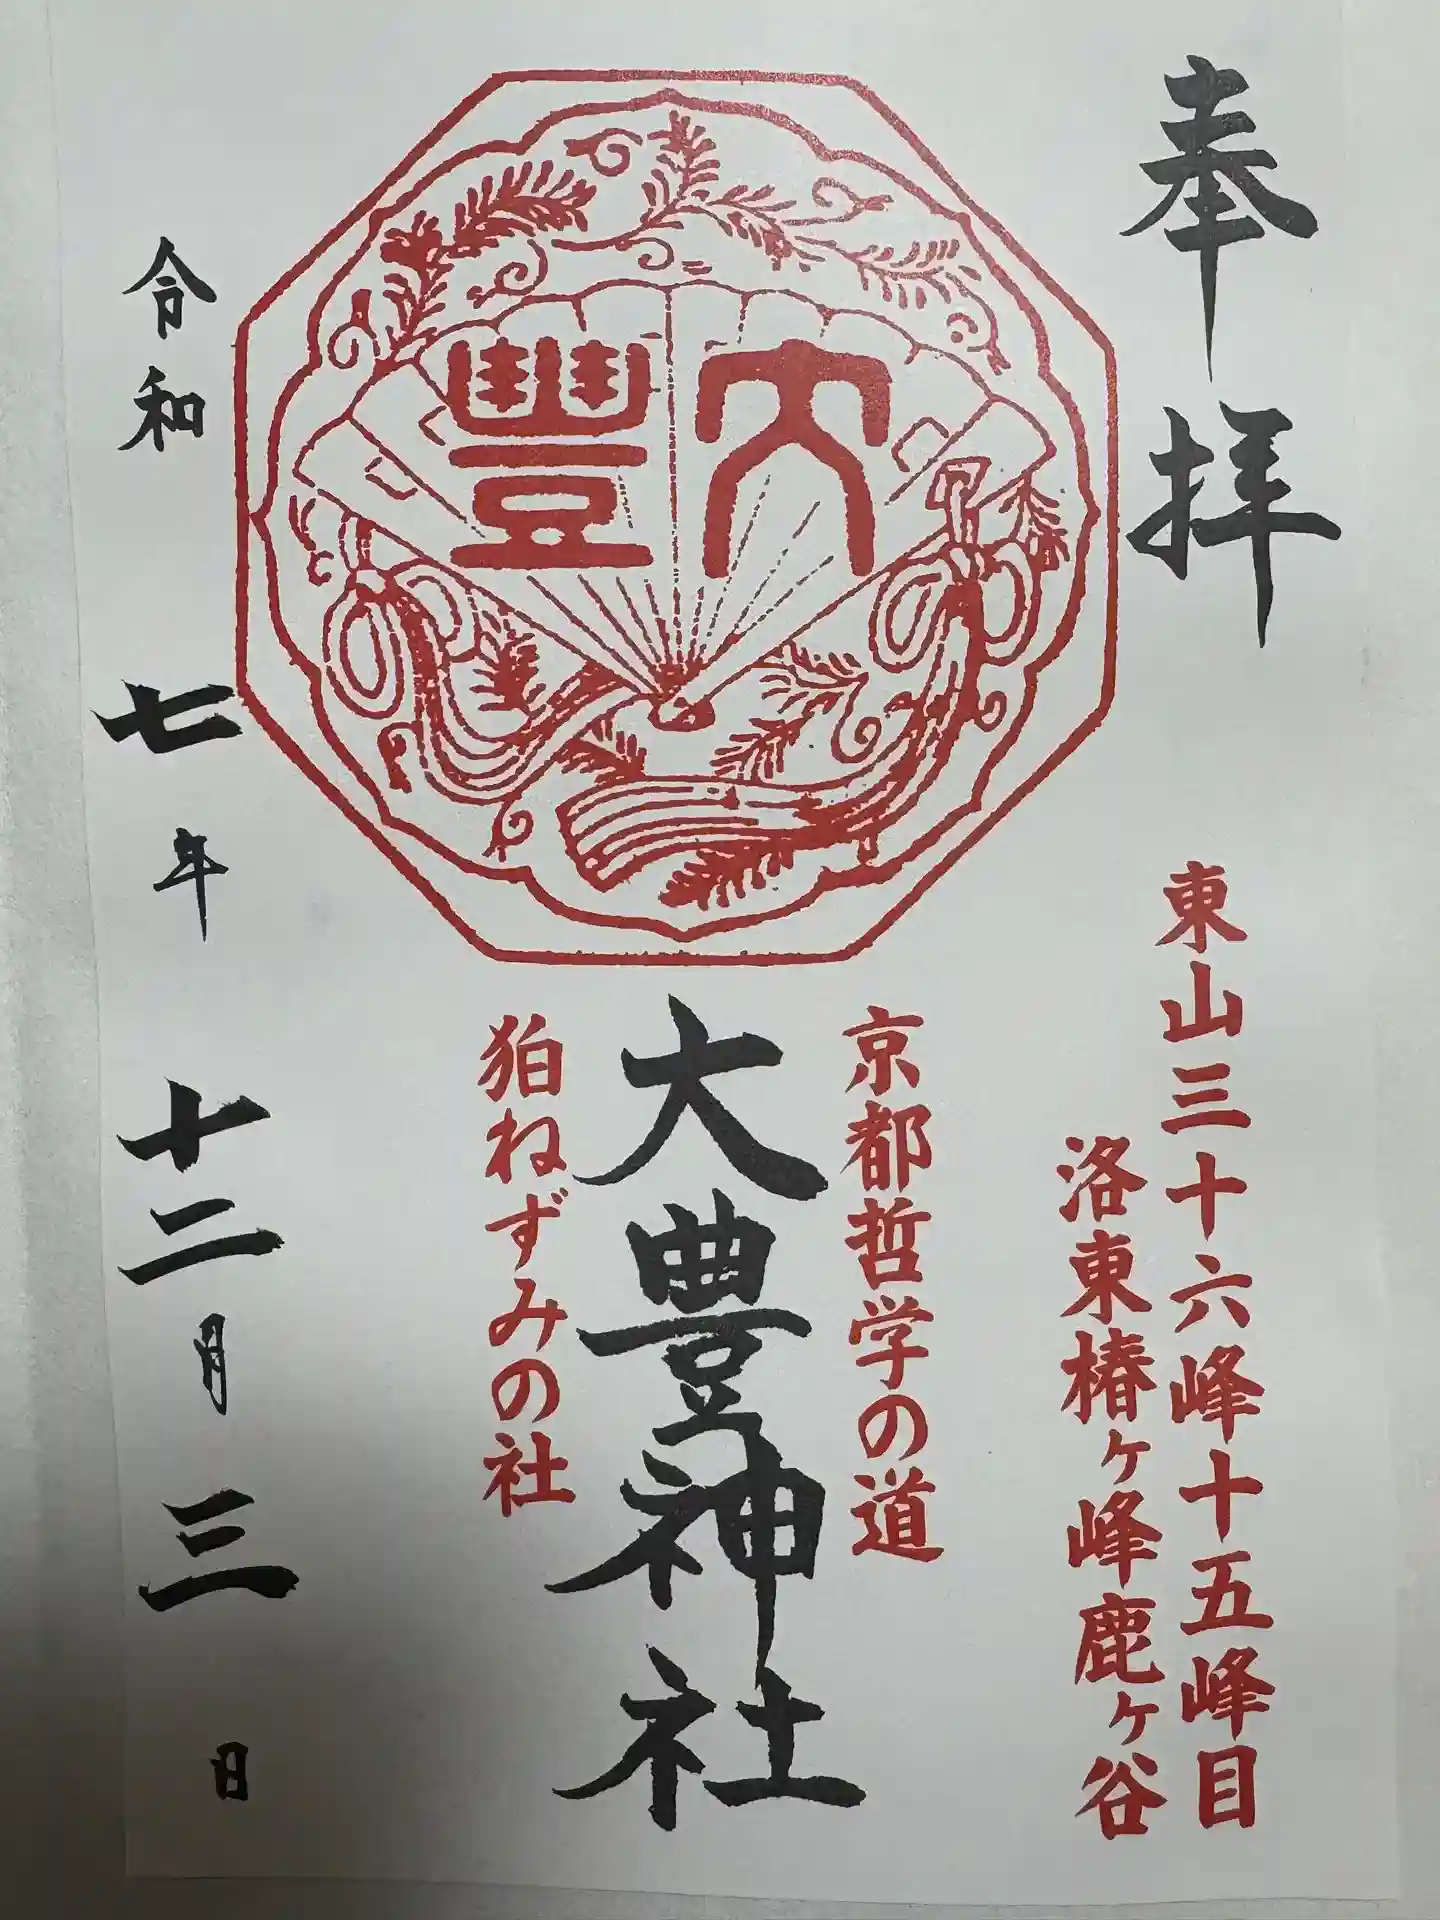 奉拝
東山三十六峰十五峰目
洛東椿ヶ峰鹿ヶ谷
京都哲学の道
大豊
大豊神社
狛ねずみの社
令和七年十二月三日